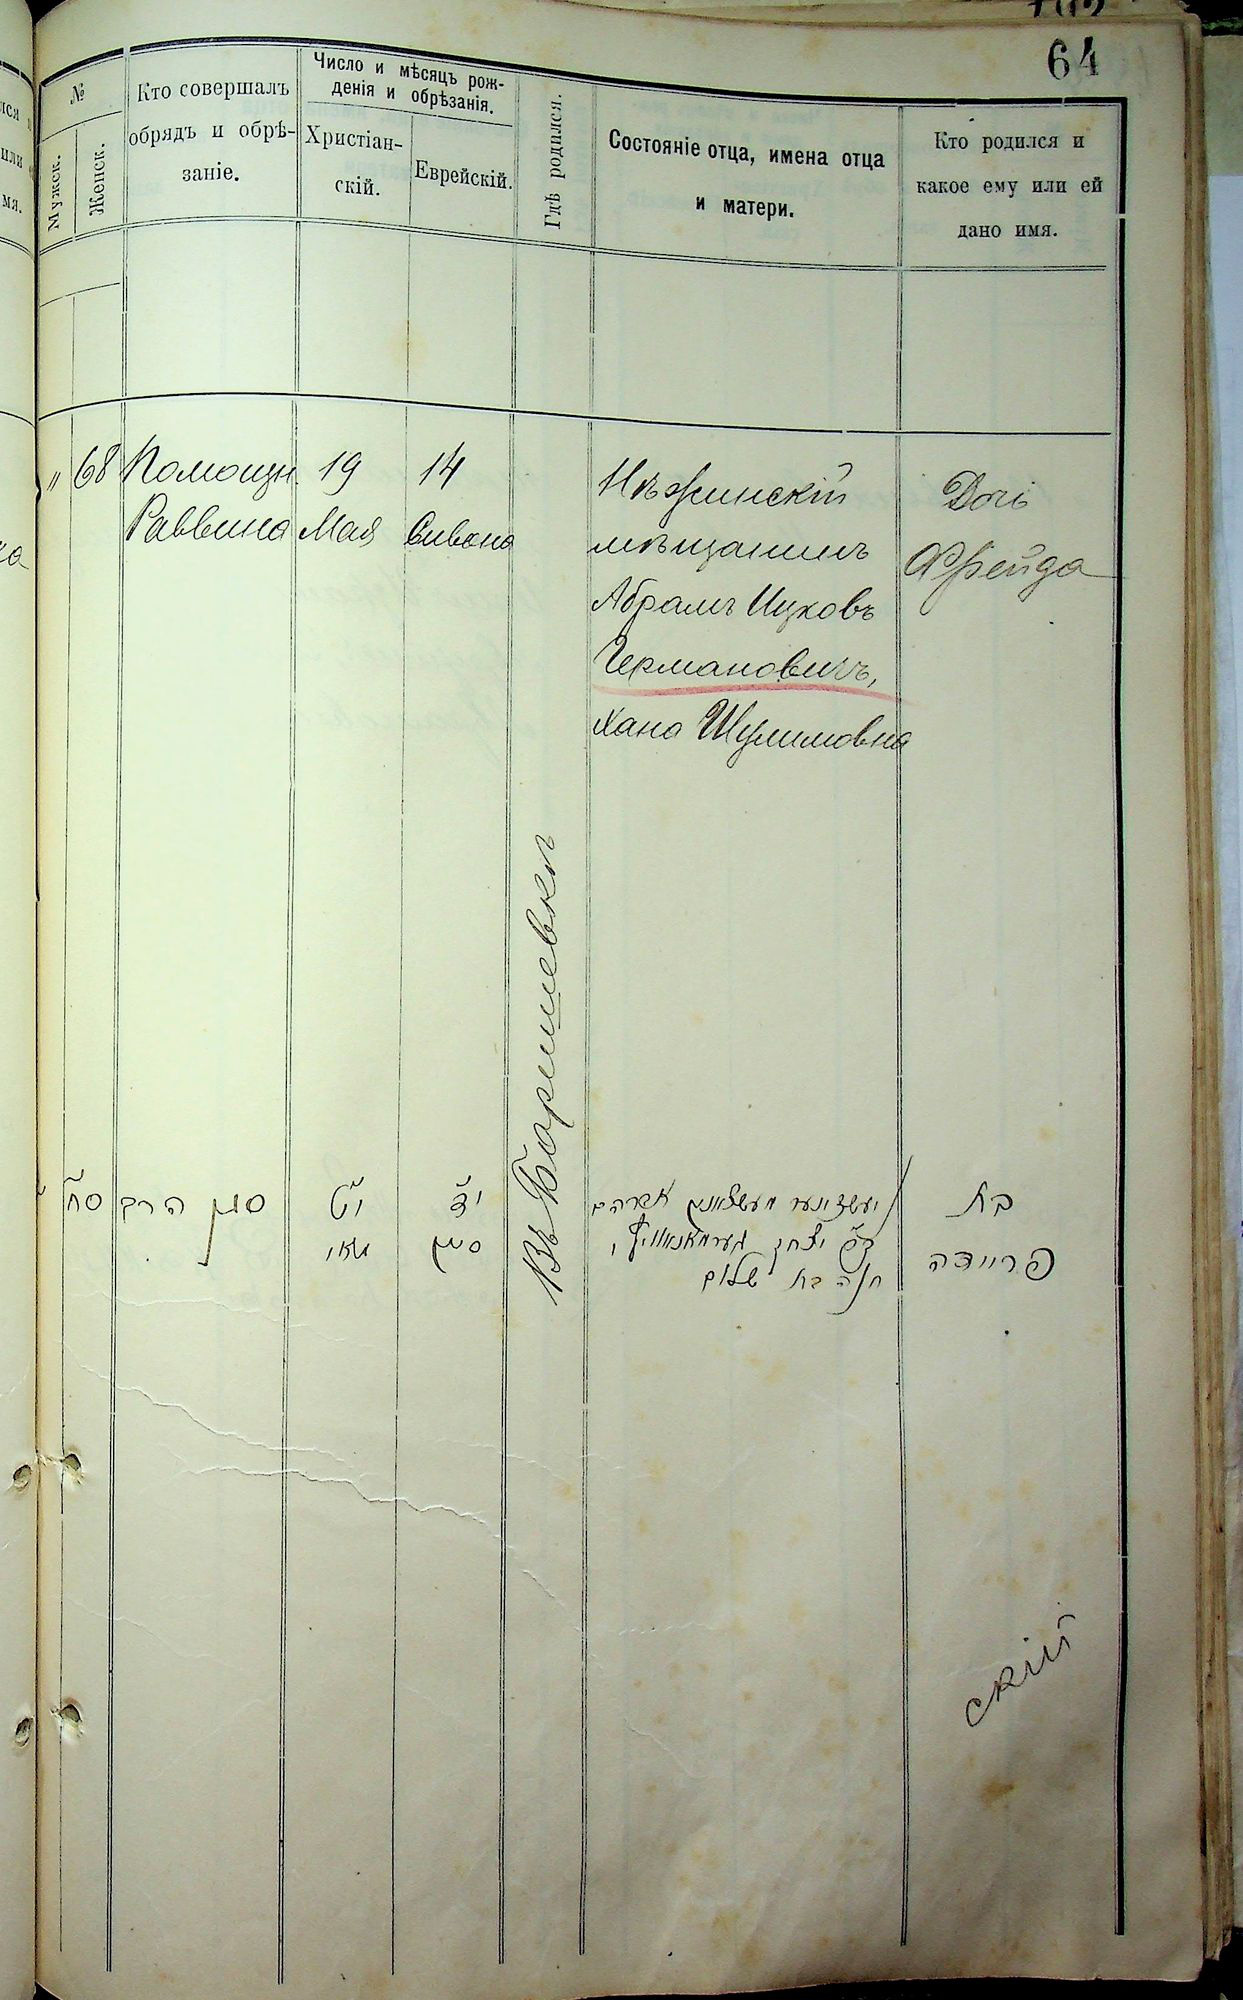 64
№
Мужск.
Женск.
Кто совершалъ
обрядъ и обрѣ-
заніе.
Число и мѣсяцъ рож-
денія и обрѣзанія.
Христіан-
скій.
Еврейскій.
Гдѣ родился.
Состояніе отца, имена отца
и матери.
Кто родился и
какое ему или ей
дано имя.
„
68
Помощн.
Раввина
19
Мая
14
Сивана
Въ Баришевкѣ
Нѣжинскій
мѣщанинъ
Абрамъ Ицковъ
Германовичъ,
Хана Шулимовна
Дочь
Фрейда
סח
סגן הרב
יט
מאי
יד
סיון
אברהם
יצחק
חנה בת שלום
בת
פריידה
скій